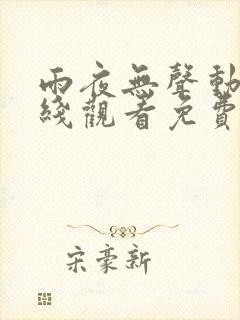 雨夜無聲動
綫觀看免費
宋豪新